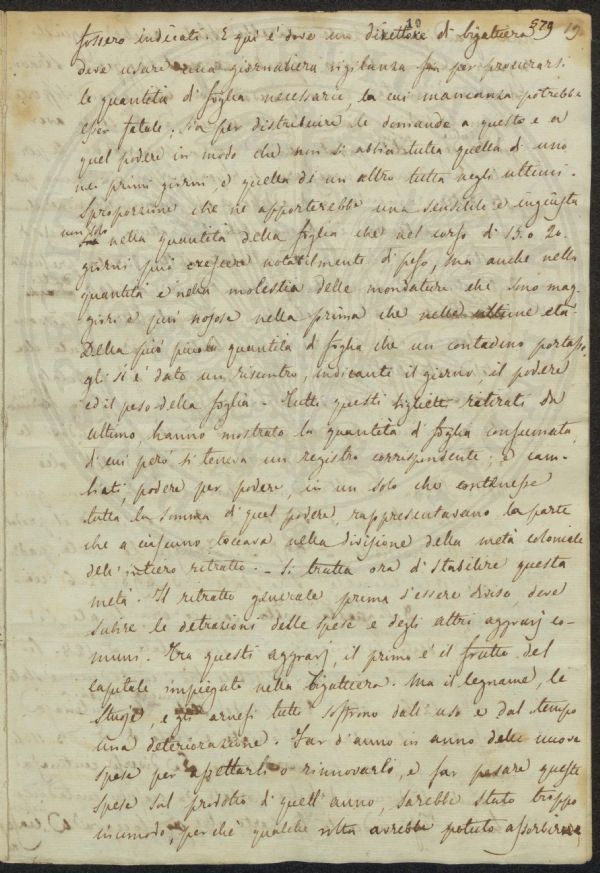 10 579 19
fossero indicati. E quì è dove un direttore di bigattiera
deve usare una giornaliera vigilanza per procurarsi
le quantità di foglia necessarie, la cui mancanza potrebbe
esser fatale; sia per distribuire le domande a questo e a
quel podere in modo che non si abbia tutta quella di uno
nei primi giorni, e quella di un altro tutta negli ultimi.
Sproporzione che ne apporterebbe una sensibile e ingiusta
non solo
nella quantità della foglia che nel corso di 15. o 20.
giorni può crescere notabilmente di peso, ma anche nella
quantità e nella molestia delle mondature che sono mag-
giori e più nojose nella prima che nelle ultime età.
Della più piccola quantità di foglia che un contadino portasse,
gli si è dato un riscontro, indicante il giorno, il podere
ed il peso della foglia. Tutti questi biglietti ritirati da
ultimo, hanno mostrato la quantità di foglia consumata,
di cui però si teneva un registro corrispondente; e cam-
biati, podere per podere, in un solo che contenesse
tutta la somma di quel podere, rappresentavano la parte
che a ciascuno toccava nella divisione della metà colonica
dell'intiero ritratto. Si tratta ora di stabilire questa
metà. Il ritratto generale prima d'essere diviso, deve
subire le detrazioni delle spese e degli altri aggravj co-
muni. Tra questi aggravj, il primo è il frutto del
capitale impiegato nella bigattiera. Ma il legname, le
stuoje, e gli arnesi tutti soffrono dall'uso e dal tempo
una deteriorazione. Far d'anno in anno delle nuove
spese per assettarli o rinnovarli, e far pesare queste
spese sul prodotto di quell'anno, sarebbe stato troppo
incomodo, perchè qualche volta avrebbe potuto assorbirne